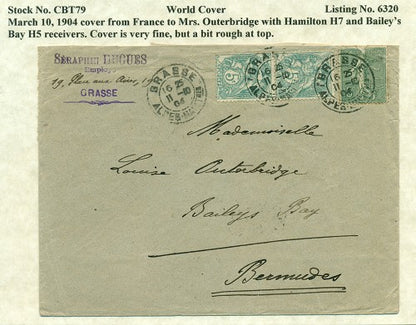 Stock No. CBT79 World Cover Listing No. 6320
March 10, 1904 cover from France to Mrs. Outerbridge with Hamilton H7 and Bailey's
Bay H5 receivers. Cover is very fine, but a bit rough at top.
SÉRAPHIN HUGUES
Employé
19, Place aux Aires, 19
GRASSE
GRASSE
ALPES-MARITIMES
5
5
5
GRASSE
04
GRASSE
ALPES-MARITIMES
Mademoiselle
Louise Outerbridge
Baileys Bay
Bermudes